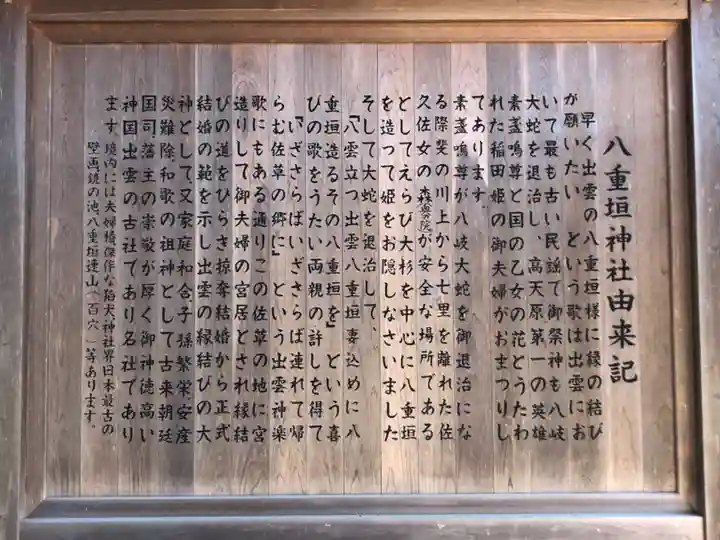 八重垣神社由来記
早く出雲の八重垣様に縁の結び
が願いたい」という歌は出雲にお
いて最も古い民謡で御祭神も八岐
大蛇を退治し、高天原第一の英雄
素盞嗚尊と国の乙女の花とうたわ
れた稲田姫の御夫婦がおまつりし
てあります。
素盞嗚尊が八岐大蛇を御退治にな
る際斐の川上から七里を離れた佐
久佐女の森(奥の院)が安全な場所である
としてえらび大杉を中心に八重垣
を造って姫をお隠しなさいました
そして大蛇を退治して、
「八雲立つ出雲八重垣妻込めに八
重垣造るその八重垣を」という喜
びの歌をうたい両親の許しを得て
「いざさらばいざさらば連れて帰
らむ佐草の郷に」という出雲神楽
歌にもある通りこの佐草の地に宮
造りして御夫婦の宮居とされ縁結
びの道をひらき掠奪結婚から正式
結婚の範を示し出雲の縁結びの大
神として、又家庭和合、子孫繁栄、安産
災難除、和歌の祖神として古来朝廷
国司、藩主の崇敬が厚く御神徳高い
神国出雲の古社であり名社であり
ます 境内には夫婦椿、傑作な狛犬、神社界日本最古の
壁画、鏡の池、八重垣連山「百穴」等あります。